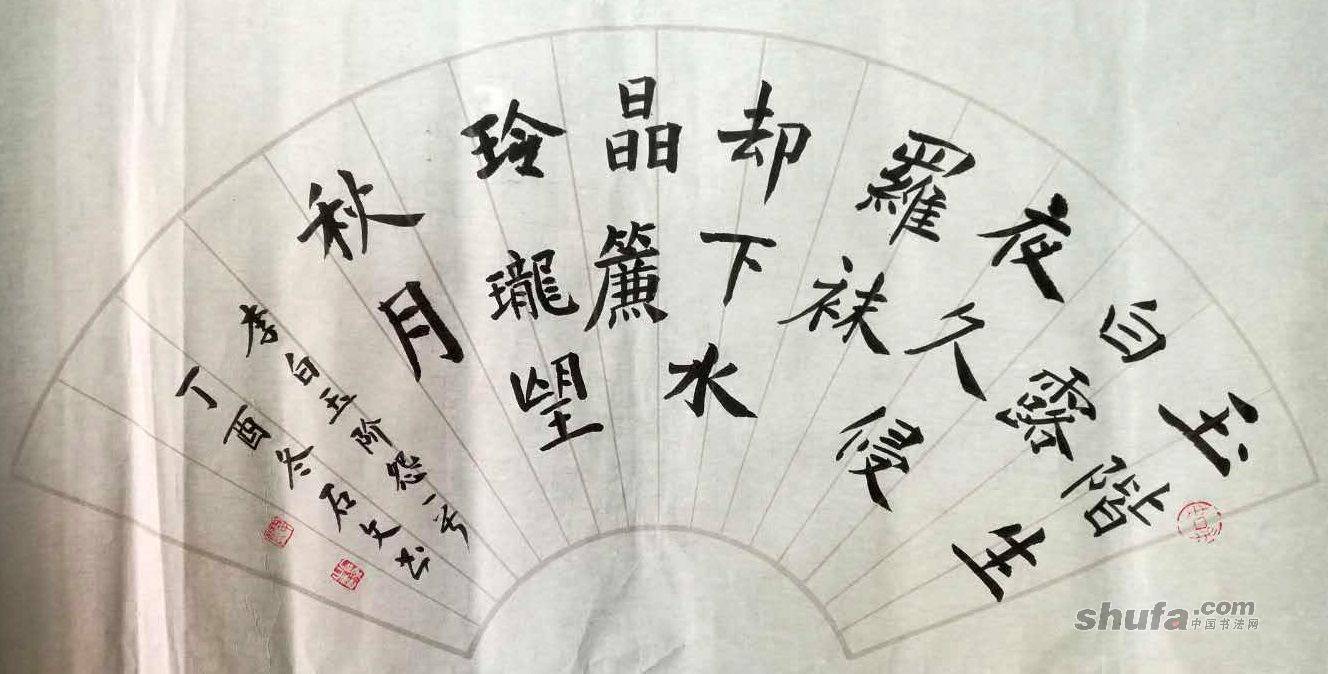 玉階生
白露
夜久侵
羅袜
却下水
晶簾
玲瓏望
秋月
李白玉阶怨一首
丁酉冬石文书
shufa.com
中国书法网